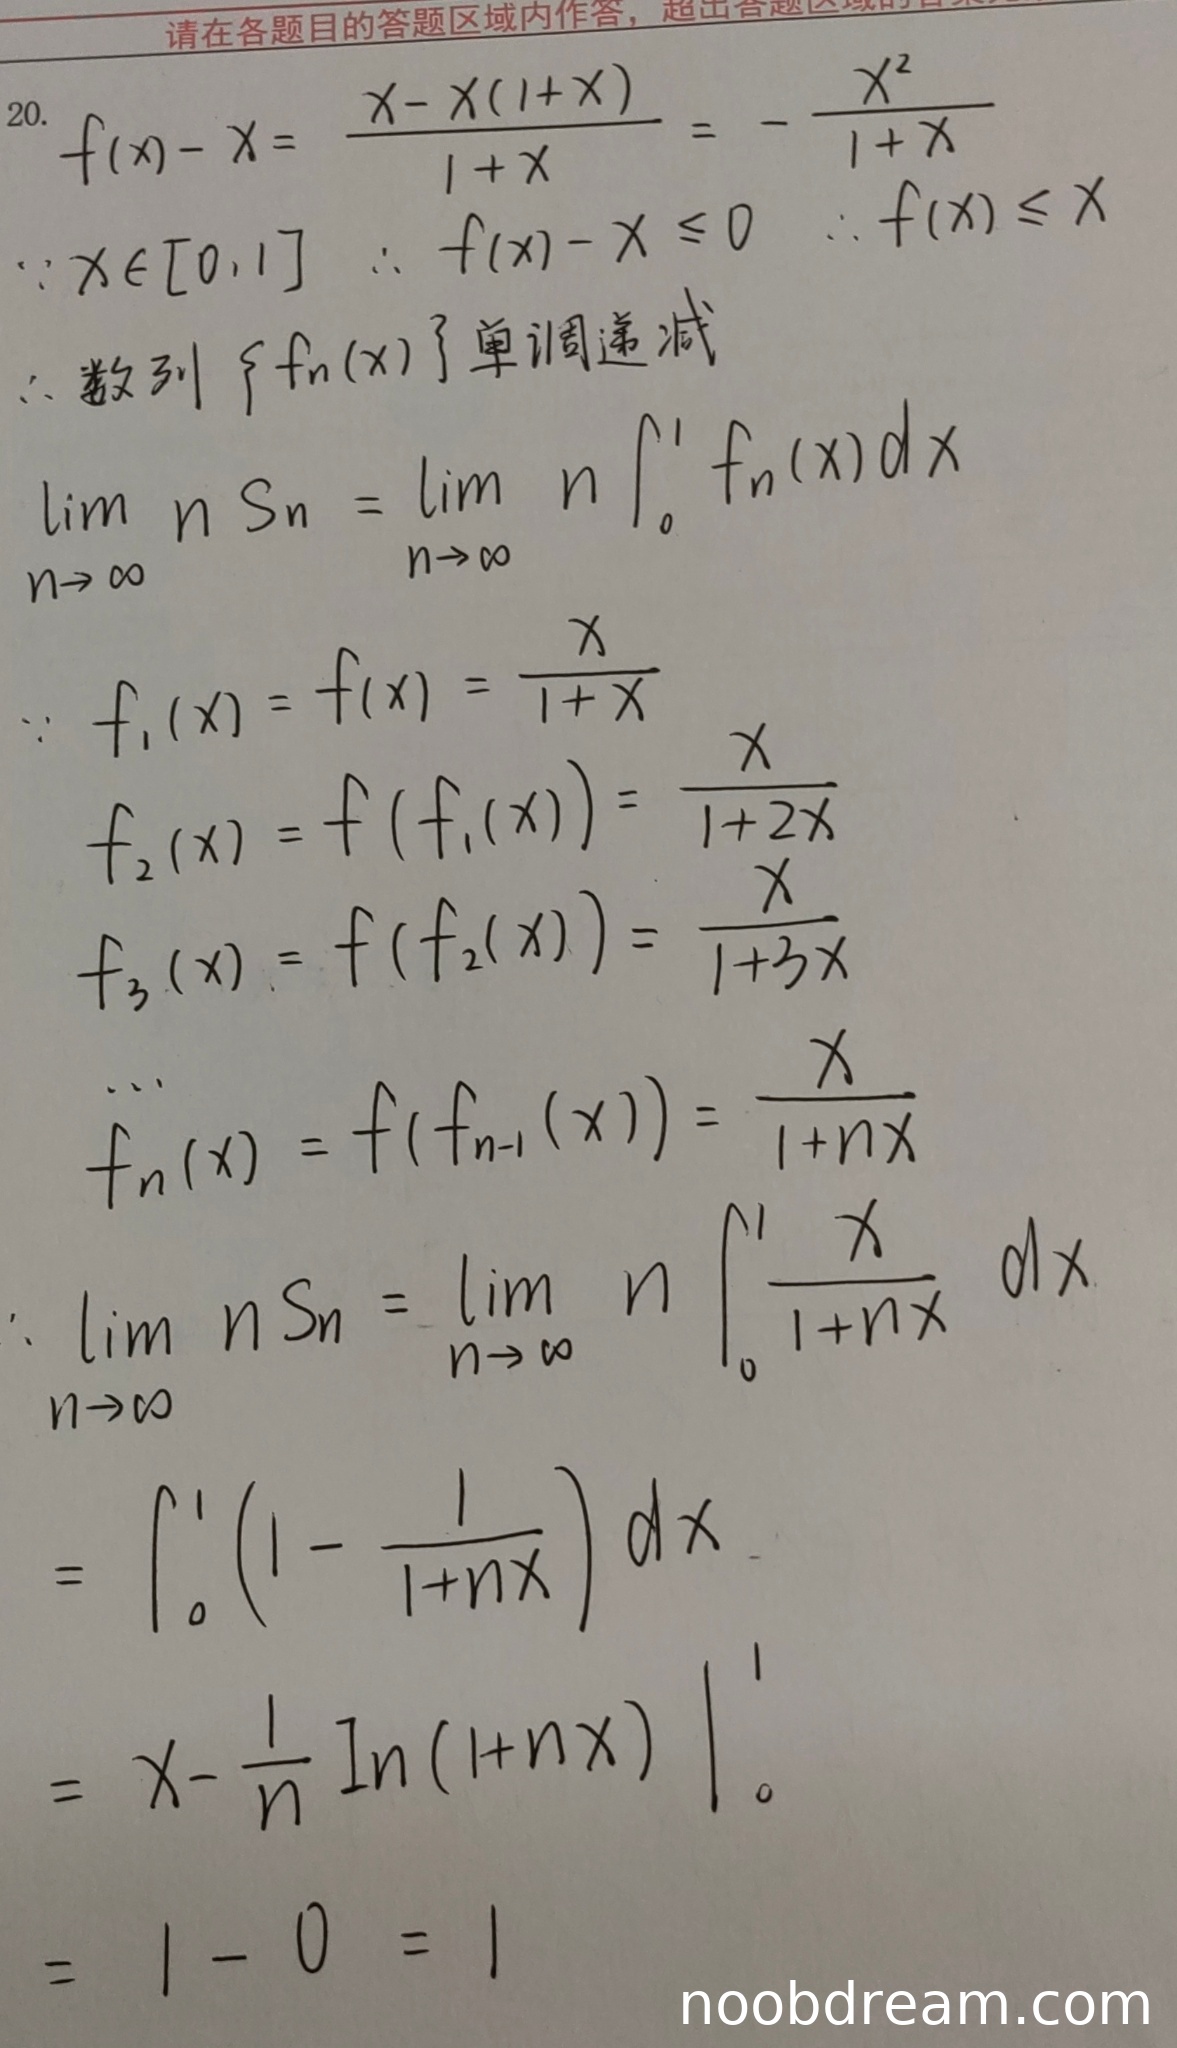 请在各题目的答题区域内作答，超出答题区域的答案无
20. f(x) - x = \frac{x - x(1+x)}{1+x} = - \frac{x^2}{1+x}
∵ x∈[0,1] ∴ f(x) - x ≤ 0 ∴ f(x) ≤ x
∴ 数列 {f_n(x)} 单调递减
\lim_{n→∞} n S_n = \lim_{n→∞} n \int_0^1 f_n(x) dx
∵ f_1(x) = f(x) = \frac{x}{1+x}
f_2(x) = f(f_1(x)) = \frac{x}{1+2x}
f_3(x) = f(f_2(x)) = \frac{x}{1+3x}
...
f_n(x) = f(f_{n-1}(x)) = \frac{x}{1+nx}
∴ \lim_{n→∞} n S_n = \lim_{n→∞} n \int_0^1 \frac{x}{1+nx} dx
= \int_0^1 (1 - \frac{1}{1+nx}) dx
= x - \frac{1}{n} In(1+nx) |_0^1
= 1 - 0 = 1
noobdream.com